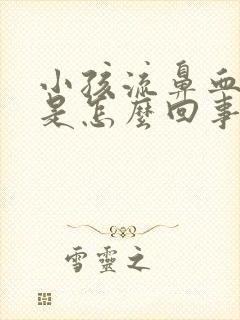 小孩流鼻血
是怎麼回事
雪靈之